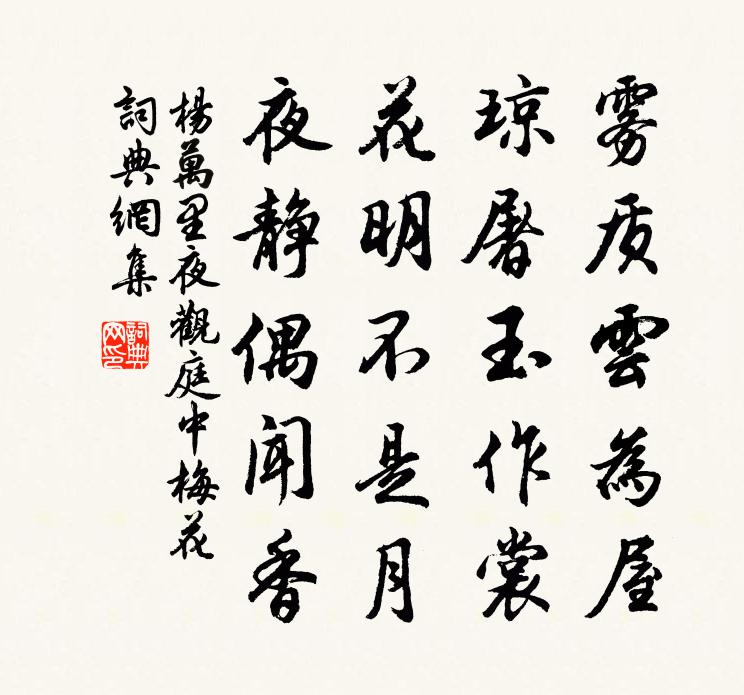 雾质雲為屋
琼屠玉作裳
花明不是月
夜静偶闻香
楊萬里夜觀庭中梅花
詞典網集
詞典网印